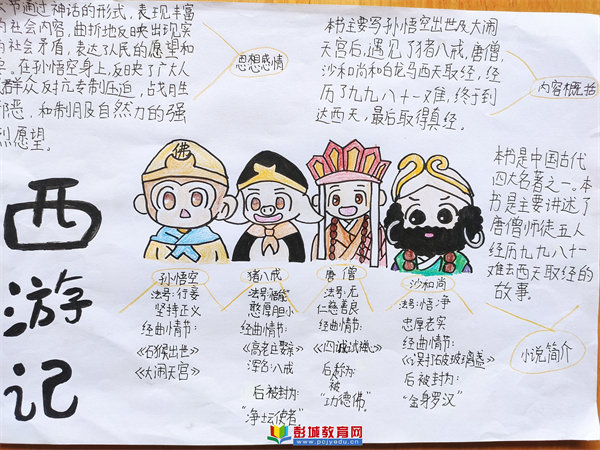 通过神话的形式，表现丰富
的社会内容，曲折地反映出现实
的社会矛盾，表达了人民的愿望和
在孙悟空身上，反映了广大人
群众反抗专制压迫，战胜
邪恶，和制服自然力的强
烈愿望。
思想感情
本书主要写孙悟空出世及大闹
天宫后，遇见了猪八戒，唐僧，
沙和尚和白龙马西天取经，经
历了九九八十一难，终于到
达西天，最后取得真经。
内容概括
佛
本书是中国古代
四大名著之一。本
书是主要讲述了
唐僧师徒五人
经历九九八十一
难去西天取经的
故事。
小说简介
西
游
记
孙悟空
法号：行者
坚持正义
经曲情节：
《石猴出世》
《大闹天宫》
猪八戒
法号：悟能
憨厚胆小
经曲情节：
《高老庄娶亲》
浑名：八戒
后被封为：
“净坛使者”
唐僧
法号：无
仁慈善良
经曲情节：
《四诚试禅心》
后称为
被
“功德佛”
沙和尚
法号：悟净
忠厚老实
经曲情节：
《误打破玻璃盏》
后被封为：
“金身罗汉”
彭城教育网
www.pcjyedu.cn